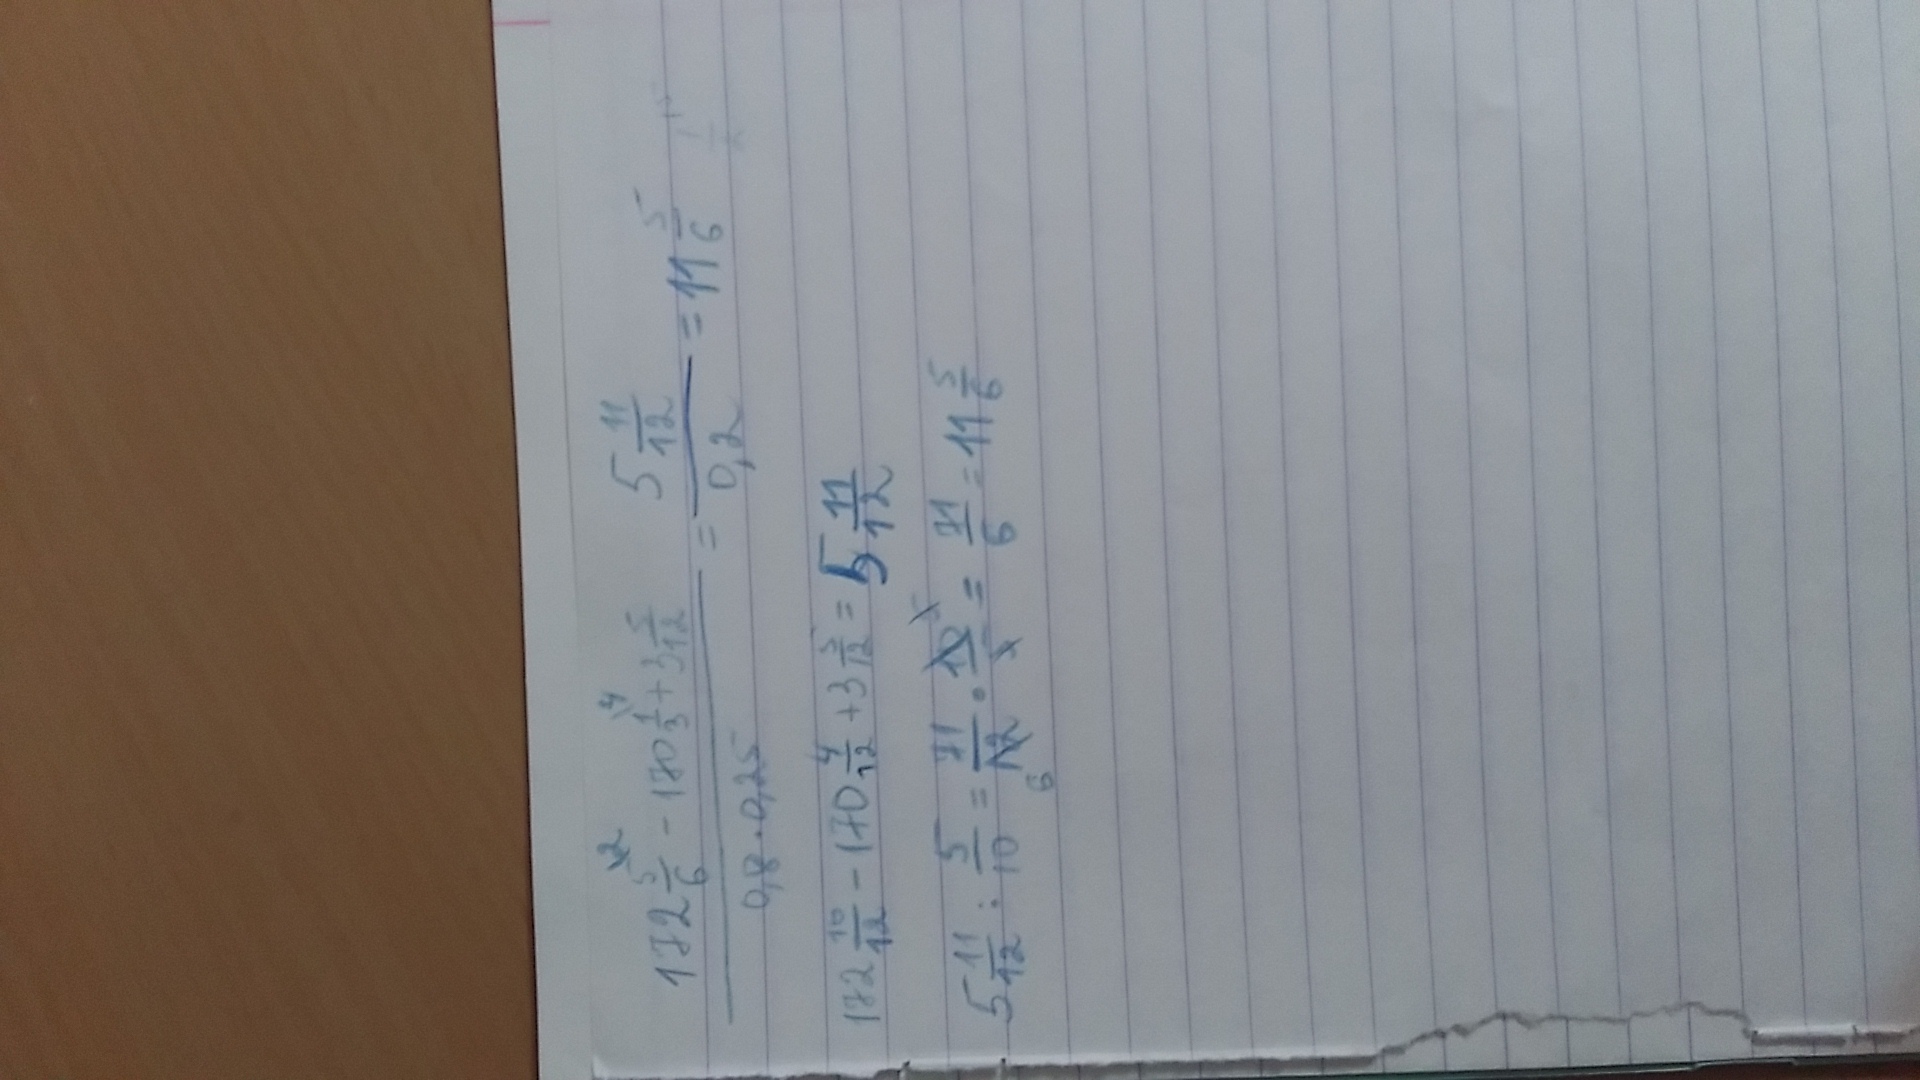 172 5/6 \2 - 170 1/3 \4 + 3 5/12 / 0,8 · 0,25 = 5 11/12 / 0,2 = 11 5/6
172 10/12 - 170 4/12 + 3 5/12 = 5 11/12
5 11/12 : 5/10 = 71/12 · 10/5 = 71/6 = 11 5/6
6